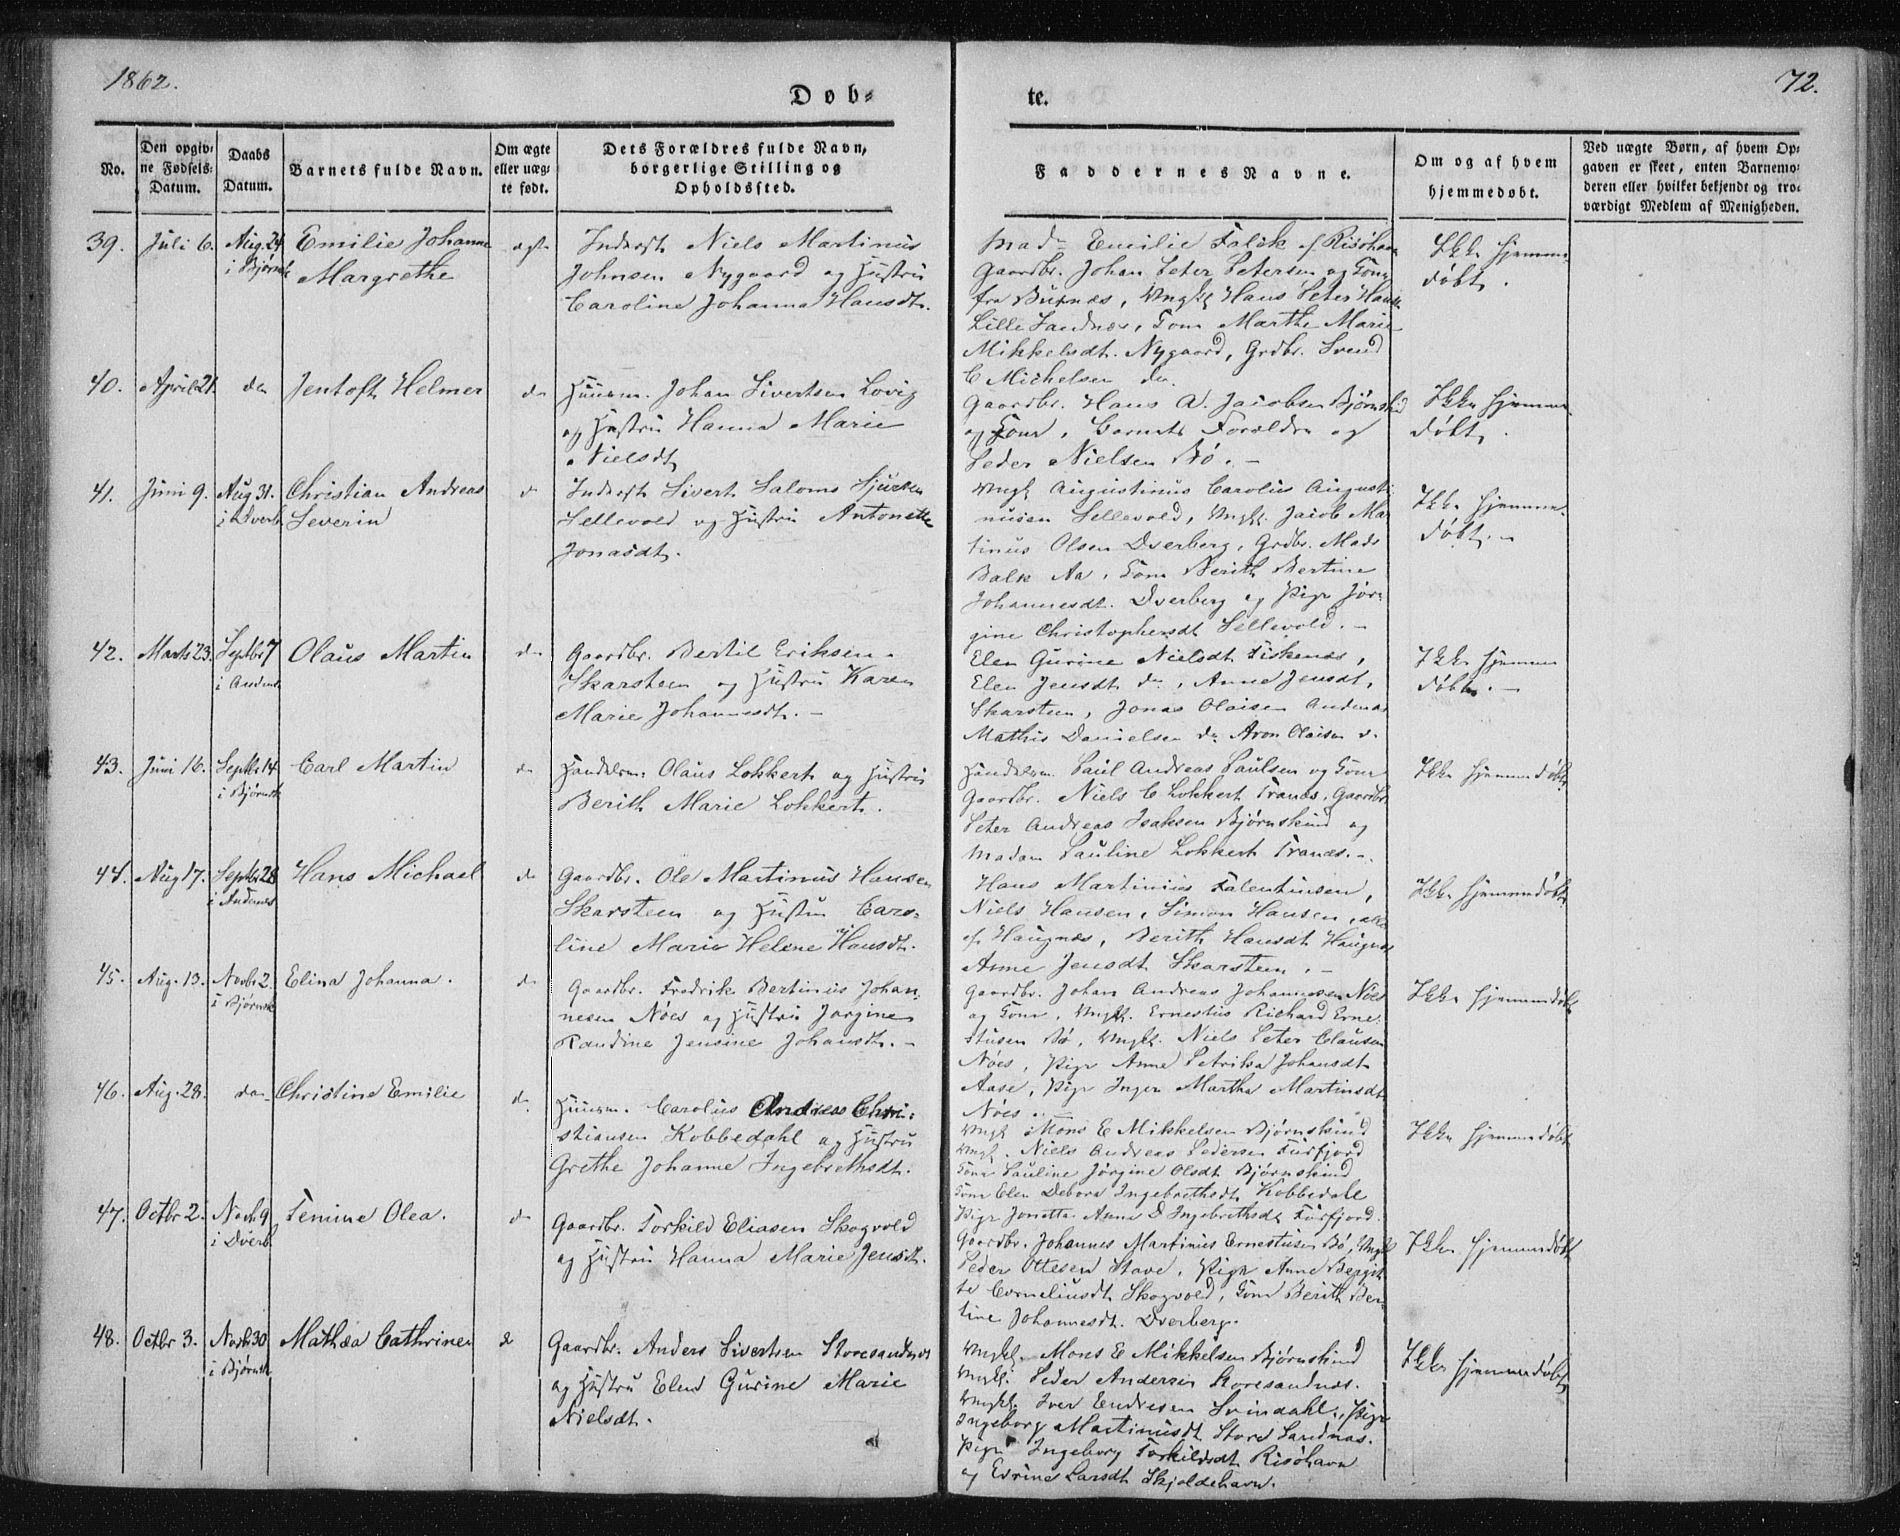 1862.
Døb-
te.
72.
No.
Den opgiv-
ne Fødsels-
Datum.
Daabs
Datum.
Barnets fulde Navn.
Om ægte
eller uæg-
te født.
Dets Forældres fulde Navn,
borgerlige Stilling og
Opholdssted.
Faddernes Navne.
Om og af hvem
hjemmedøbt.
Ved uægte Børn, af hvem Op-
gaven er skeet, enten Barnemo-
deren eller hvilket bekjendt og tro-
værdigt Medlem af Menigheden.
39. Juli 6. Aug. 24 Emilie Johanne ægte Inderst Niels Martinus
i Bjørnsk Margrethe Johnsen Nygaard og Hustru
Caroline Johanna Hansdt.
Mad. Emilie Falck af Risøhavn
Gaardbr. Johan Peter Petersen og Kone
fra Bueknæs, Ungk. Hans Peter Hansen
Lille Sandnæs, Kone Marthe Marie
Mikkelsdt. Nygaard, Grdbr. Svend
C Michelsen do.
Ikke hjemme-
døbt.
40. April 21. do Jentoft Helmer do Huusm. Johan Sivertsen Lovig
og Hustru Hanna Marie
Nielsdt
Gaardbr. Hans A. Jacobsen Bjørnskind
og Kone, Barnets Forældre og
Peder Nielsen Bø. –
Ikke hjemme-
døbt.
41. Juni 9. Aug 31. Christian Andreas do Inderst Sivert Saloms Sjursen
i Dverb. Severin Sellevold og Hustru Antonette
Jonasdt.
Ungk Augustinus Carolius Augusti-
nusen Sellevold, Ungk. Jacob Mar-
tinus Olsen Dverberg, Grdbr. Mads
Balk Aa, Kone Berith Bertine
Johannesdt. Dverberg og Pige Jør-
gine Christophersdt Sellevold. –
Ikke hjemme-
døbt. –
42. Marts 23. Septbr 7 Olaus Martin do Gaardbr. Bertil Eriksen
i Andenæs Skarsteen og Hustru Karen
Marie Johannesdt. –
Elen Gurine Nielsdt Fiskenæs,
Elen Jensdt do, Anne Jensdt,
Skarsteen, Jonas Olaisen Andenæs
Mathis Danielsen do Aron Olaisen do.
Ikke hjemme
døbt. –
43. Juni 16. Septbr 14 Carl Martin do Handelsm. Olaus Lokkert og Hustru
i Bjørnsk Berith Marie Lokkert.
Handelsm. Paul Andreas Paulsen og Kone
Gaardbr. Niels C Lokkert Tranæs, Gaardbr.
Peter Andreas Isaksen Bjørnskind og
Madam Pauline Lokkert Tranæs. –
Ikke hjemmedøbt
44. Aug 17. Septbr 28 Hans Michael do Gaardbr. Ole Martinus Hansen
i Andenæs Skarsteen og Hustru Caro-
line Marie Helene Hansdt.
Hans Martinius Falentinsen,
Niels Hansen, Simon Hansen, alle
af Haugnæs, Berith Hansdt Haugnæs
Anne Jensdt Skarsteen. –
Ikke hjemmedøbt
45. Aug. 13. Novbr 2. Elina Johanna. do Gaardbr. Fredrik Bertinus Johan-
i Bjørnsk nesen Nøes og Hustru Jørgine
Randine Jensine Johansdt. –
Gaardbr. Johan Andreas Johannesen Nøes
og Kone, Ungk. Ernestus Richard Erne-
stusen Bø, Ungk. Niels Peter Clausen
Nøes, Pige Anne Petrika Johansdt
Aase, Pige Inger Martha Martinsdt
Nøes.
Ikke hjemmedøbt
46. Aug. 28. do Christine Emilie do Huusm. Carolius Andreas Chri-
stiansen Kobbedahl og Hustru
Grethe Johanne Ingebrethsdt.
Ungk Mons E Mikkelsen Bjørnskind
Ungk. Niels Andreas Pedersen Forfjord
Kone Pauline Jørgine Olsdt Bjørnskind
Kone Elen Debora Ingebrethsdt Kobbedale
Pige Jonetta Anne D Ingebrethsdt Forfjord.
Ikke hjemmedøbt
47. Octbr 2. Novbr 9 Temine Olea. do Gaardbr. Torkild Eliasen Skogvold
i Dverb. og Hustru Hanna Marie Jensdt.
Gaardbr. Johannes Martinus Ernestusen Bø, Ungk
Peder Ottesen Stave, Pige Anne Bergit-
te Corneliusdt Skogvold, Kone Berith Ber-
tine Johannesdt. Dverberg.
Ikke hjemmedøbt
48. Octbr 3. Novbr 30 Mathæa Cathrine do Gaardbr. Anders Sivertsen Storesandnæs
i Bjørnsk og Hustru Elen Gurine Marie
Nielsdt.
Ungk. Mons E Mikkelsen Bjørnskind
Ungk. Peder Andersen Storesandnæs.
Ungk. Iver Endresen Svindahl, Pige
Ingeborg Martinusdt Store Sandnæs.
Pige Ingeborg Torkildsdt Risøhavn
og Evrine Larsdt Skjoldehavn.
Ikke hjemmedøbt